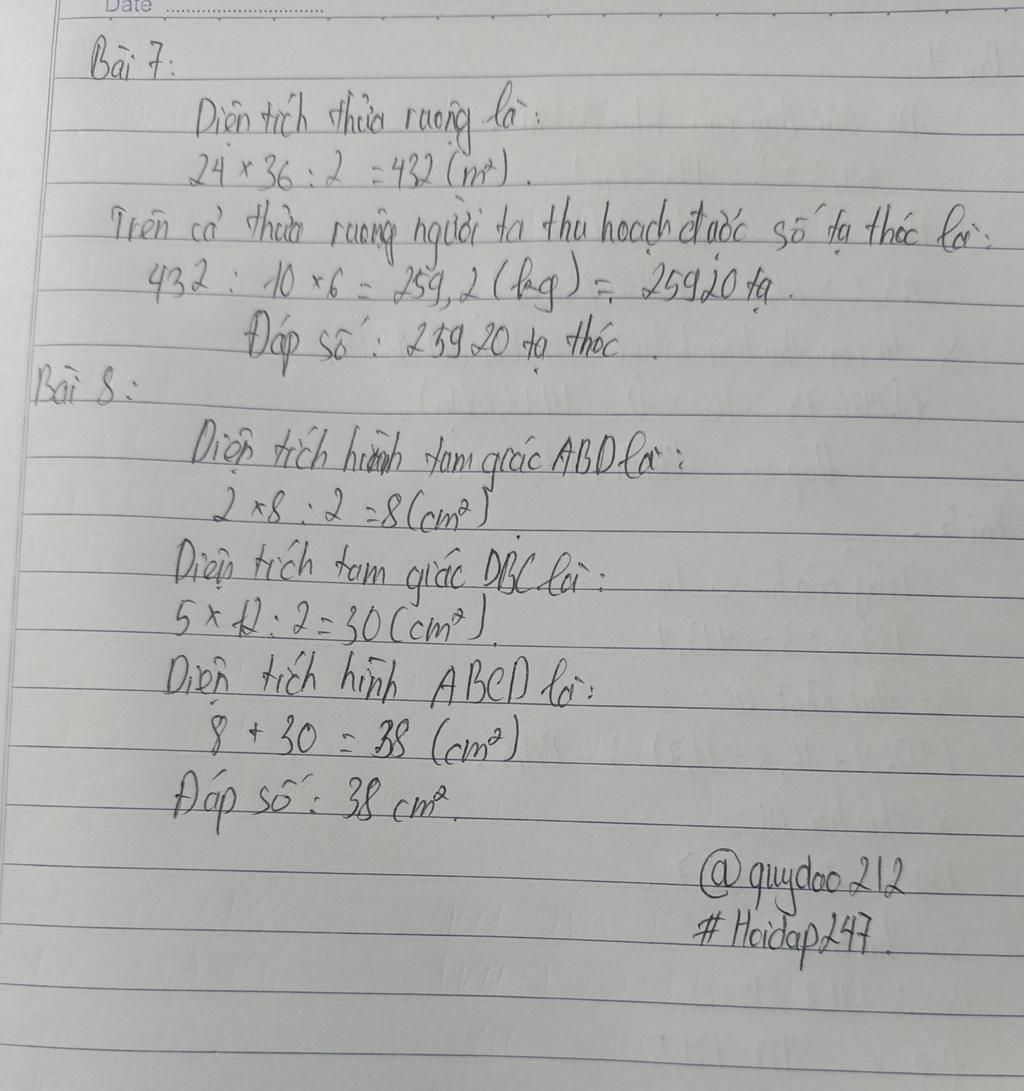 Date
Bài 7:
Diện tích thửa ruộng là:
24 × 36 : 2 = 432 (m²).
Trên cả thửa ruộng người ta thu hoạch được số tạ thóc là:
432 : 10 × 6 = 259,2 (kg) = 25920 tạ.
Đáp số: 25920 tạ thóc.
Bài 8:
Diện tích hình tam giác ABD là:
2 × 8 : 2 = 8 (cm²)
Diện tích tam giác DBC là:
5 × 12 : 2 = 30 (cm²).
Diện tích hình ABCD là:
8 + 30 = 38 (cm²)
Đáp số: 38 cm².
@quydao212
#Hoidap247.